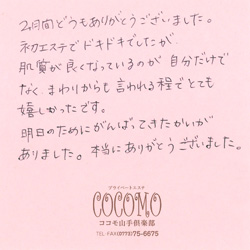 2ヶ月間どうもありがとうございました。
初エステでドキドキでしたが
肌質が良くなっているのが 自分だけで
なく、まわりからも 言われる程でとても
嬉しかったです。
明日のためにがんばってきたかいが
ありました。本当にありがとうございました。
プライベートエステ
COCOMO
ココモ山手倶楽部
TEL・FAX(0773)75-6675